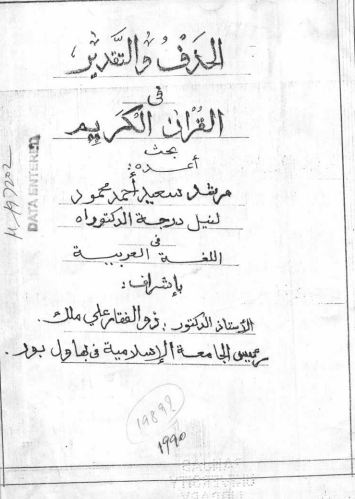 الحذف والتقدير
فى
القرآن الكريم
بحث
أعده:
مرشد سعيد أحمد محمود
لنيل درجة الدكتوراه
فى
اللغة العربية
بإشراف:
الأستاذ الدكتور: ذو الفقار علي ملك.
رئيس الجامعة الإسلامية فى بهاول بور.
DATA ENTERED
1990